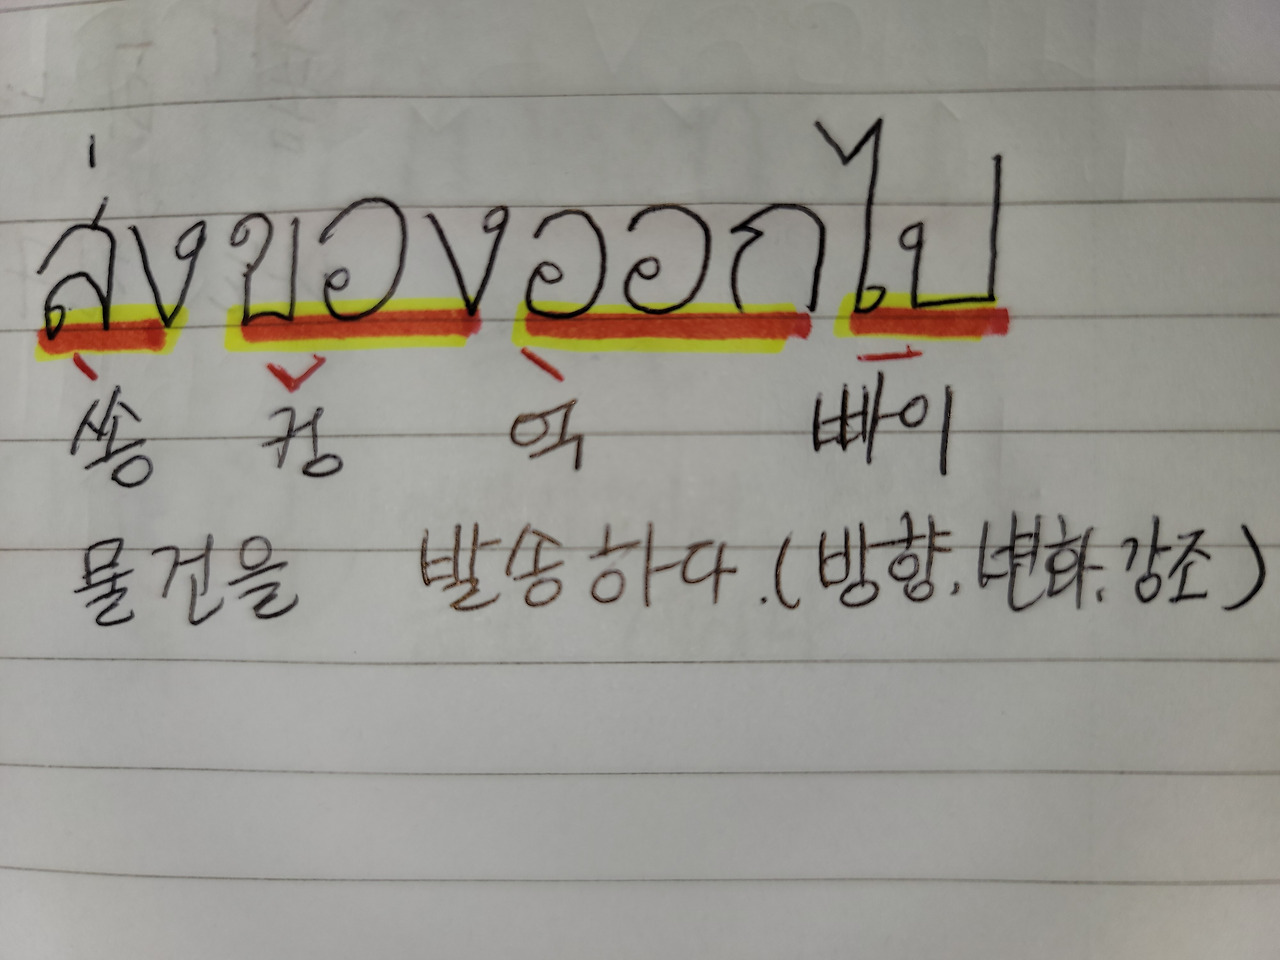 ส่งของออกไป
쏭 컹 억 빠이
물건을 발송하다.(방향.변화.강조)